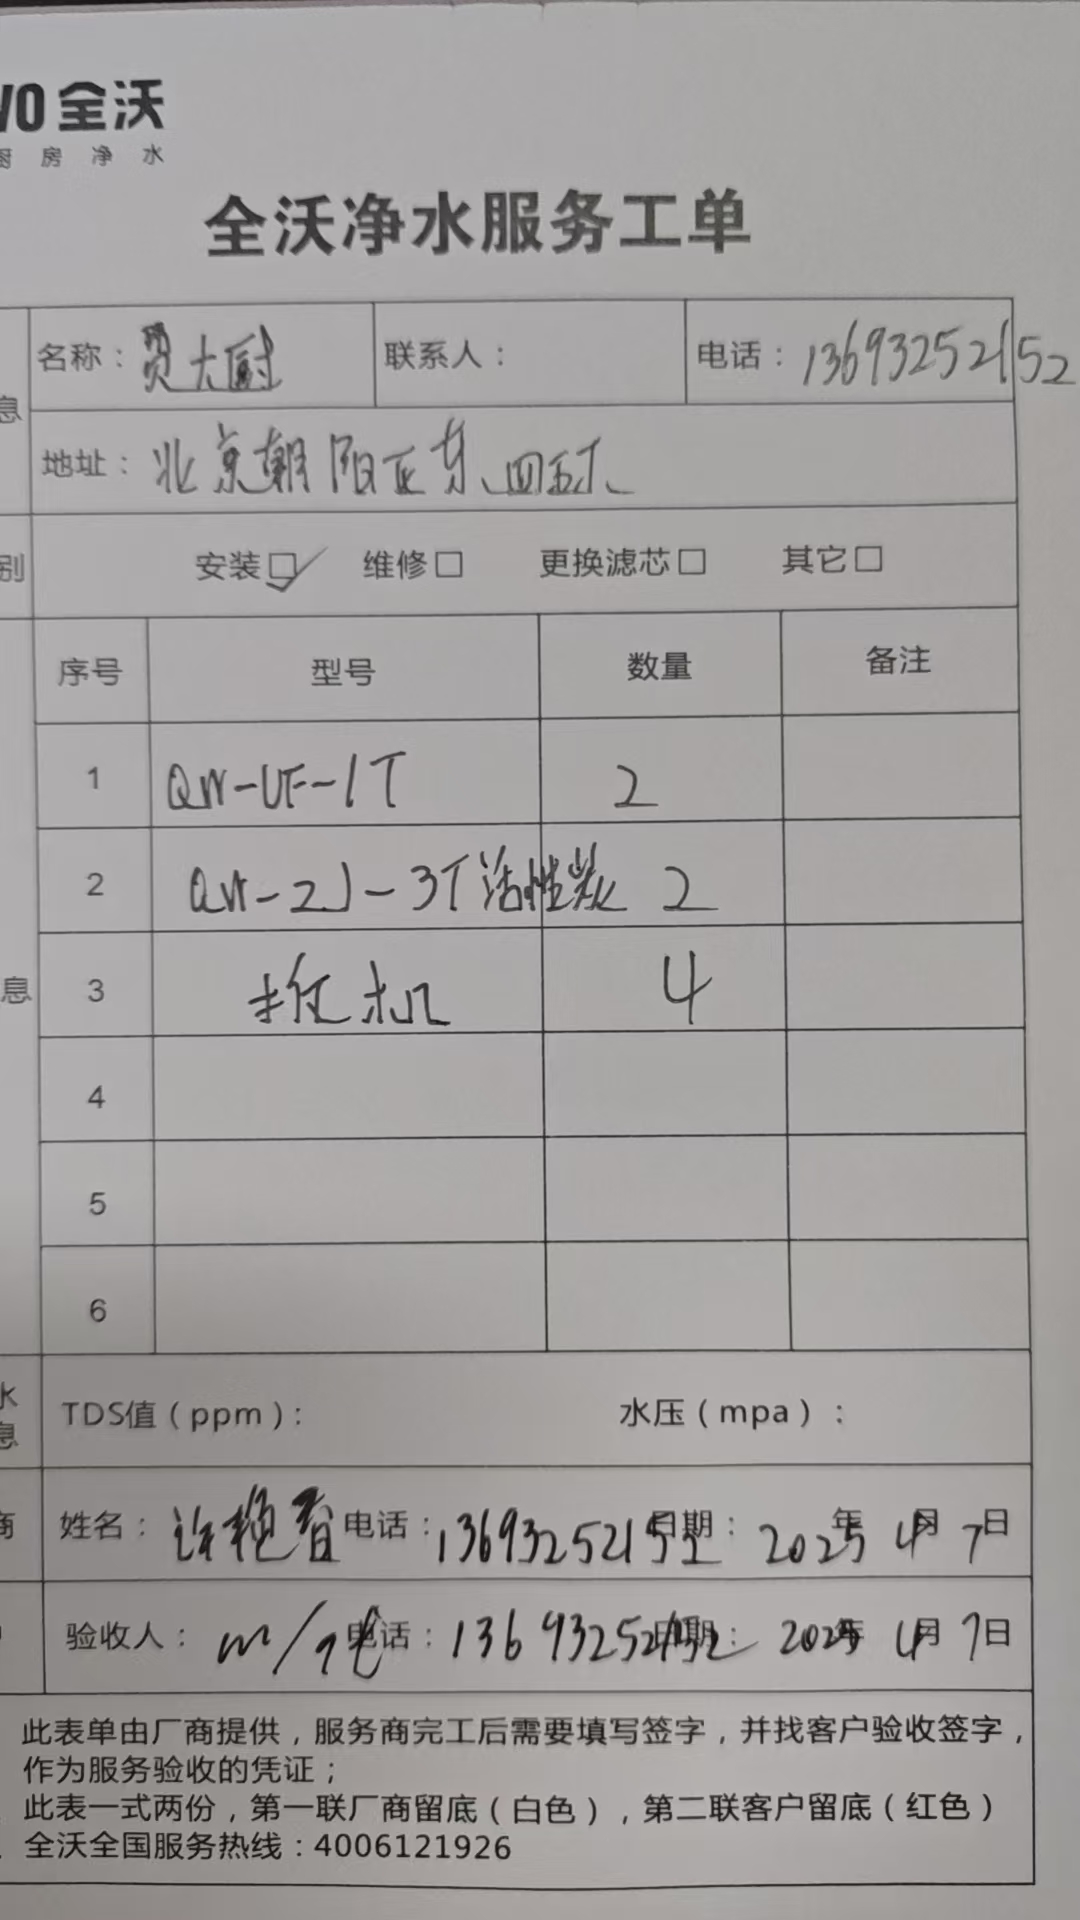 VO 全沃
厨房净水
全沃净水服务工单
息
名称： 贾大厨 联系人： 电话：13693252152
地址：北京朝阳正东
别 安装☑ 维修□ 更换滤芯□ 其它□
序号 型号 数量 备注
1 QW-UF-1T 2
2 QW-2J-3T活性炭 2
息 3 机 4
4
5
6
水
息
TDS值（ppm）： 水压（mpa）：
商 姓名：许艳春 电话：13693252152 日期：2025年4月7日
验收人： 电话：13693252152 日期：2025年4月7日
此表单由厂商提供，服务商完工后需要填写签字，并找客户验收签字，
作为服务验收的凭证；
此表一式两份，第一联厂商留底（白色），第二联客户留底（红色）
全沃全国服务热线：4006121926